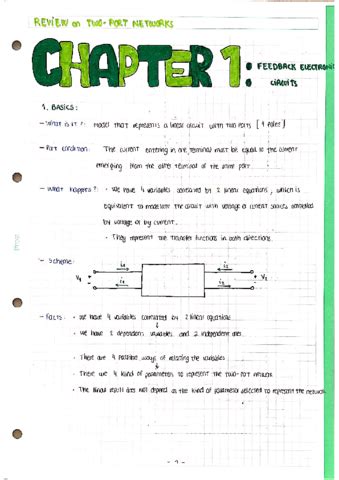 REVIEW on TWO-PORT NETWORKS
CHAPTER 1: FEEDBACK ELECTRONIC
CIRCUITS
1. BASICS:
- What is it?: model that represents a linear circuit with two ports [4 poles]
- Port condition: The current entering in one terminal must be equal to the current
emerging from the other terminal of the same port
- What happens?: · We have 4 variables correlated by 2 linear equations, which is
equivalent to modelate the circuit with voltage or current sources controlled
by voltage or by current.
· They represent the transfer functions in both directions.
- Scheme:
i1 i2
V1 + - + - V2
i1 i2
- Facts: · We have 4 variables correlated by 2 linear equations
· We have 2 dependents variables and 2 independent ones.
· There are 4 possible ways of relating the variables
· There are 4 kind of parameters to represent the two-port network
· The final result does not depend on the kind of parameter selected to represent the network